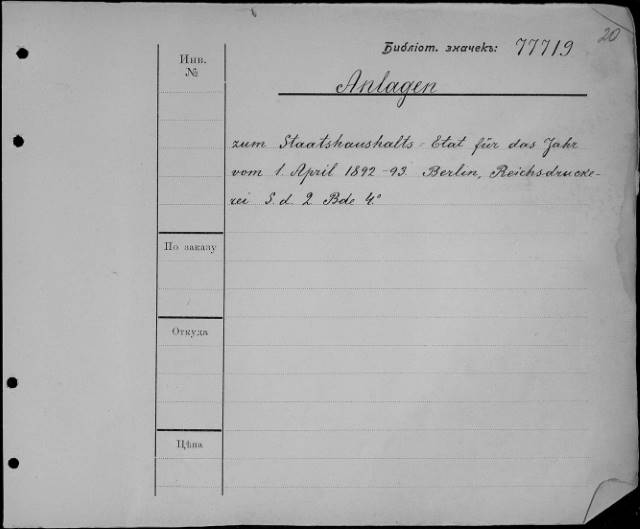 20
Библіот. значекъ: 77719
Инв.
№
Anlagen
zum Staatshaushalts-Etat für das Jahr
vom 1. April 1892-93. Berlin, Reichsdrucke-
rei S. d. 2 Bde 4°
По заказу
Откуда
Цѣна